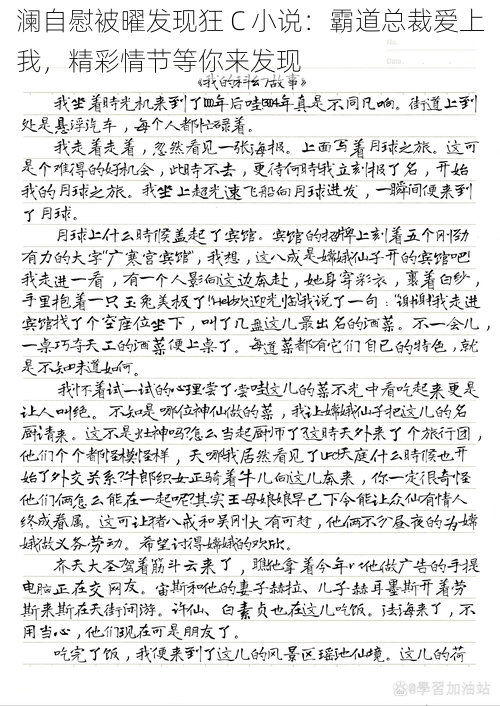 澜自慰被曜发现狂 C 小说：霸道总裁爱上
我，精彩情节等你来发现
No.
Date.
《我的科幻故事》
我坐着時光机来到了1000年后哇!3004年真是不同凡响。街道上到
处是悬浮汽车，每个人都忙碌着。
我走着走着，忽然看见一张海报。上面写着月球之旅。这可
是个难得的好机会，此時不去，更待何時我立刻报了名，开始
我的月球之旅。我坐上超光速飞船向月球进发，一瞬间便来到
了月球。
月球上什么時候盖起了宾馆。宾馆的招牌上刻着五个刚劲
有力的大字"广寒宫宾馆"，我想，这八成是嫦娥仙子开的宾馆吧!
我走进一看，有一个人影向这边奔赴，她身穿彩衣，裹着白纱，
手里抱着一只玉兔美极了!欢迎光临!我说了一句：谢谢!我走进
宾馆找了个空座位坐下，叫了几盘这儿最出名的酒菜。不一会儿，
一桌巧夺天工的酒菜便上桌了。每道菜都有它们自己的特色，就
是不知味道如何。
我怀着试一试的心理尝了尝哇!这儿的菜不光中看吃起来更是
让人叫绝。不知是哪位神仙做的菜，我让嫦娥仙子把这儿的名
厨请来。这不是灶神吗?怎么当起厨师了?这時天外来了个旅行团，
他们个个都怪模怪样，天哪!我居然看见了天庭什么時候也开
始了外交关系?牛郎织女正骑着牛儿向这儿奔来，你一定很奇怪
他们俩怎么能在一起呢?其实王母娘娘早已下令能让众仙有情人
终成眷属。这可让猪八戒和吴刚大有可赶，他俩不分昼夜的为嫦
娥做义务劳动。希望讨得嫦娥的欢欣。
齐天大圣驾着筋斗云来了，瞧!他拿着今年他做广告的手提
电脑正在交网友。宙斯和他的妻子赫拉、儿子赫耳墨斯开着劳
斯来斯在天街闲游。许仙、白素贞也在这儿吃饭。法海来了，不
用当心，他们现在可是朋友了。
吃完了饭，我便来到了这儿的风景区瑶池仙境。这儿的荷
@學習加油站